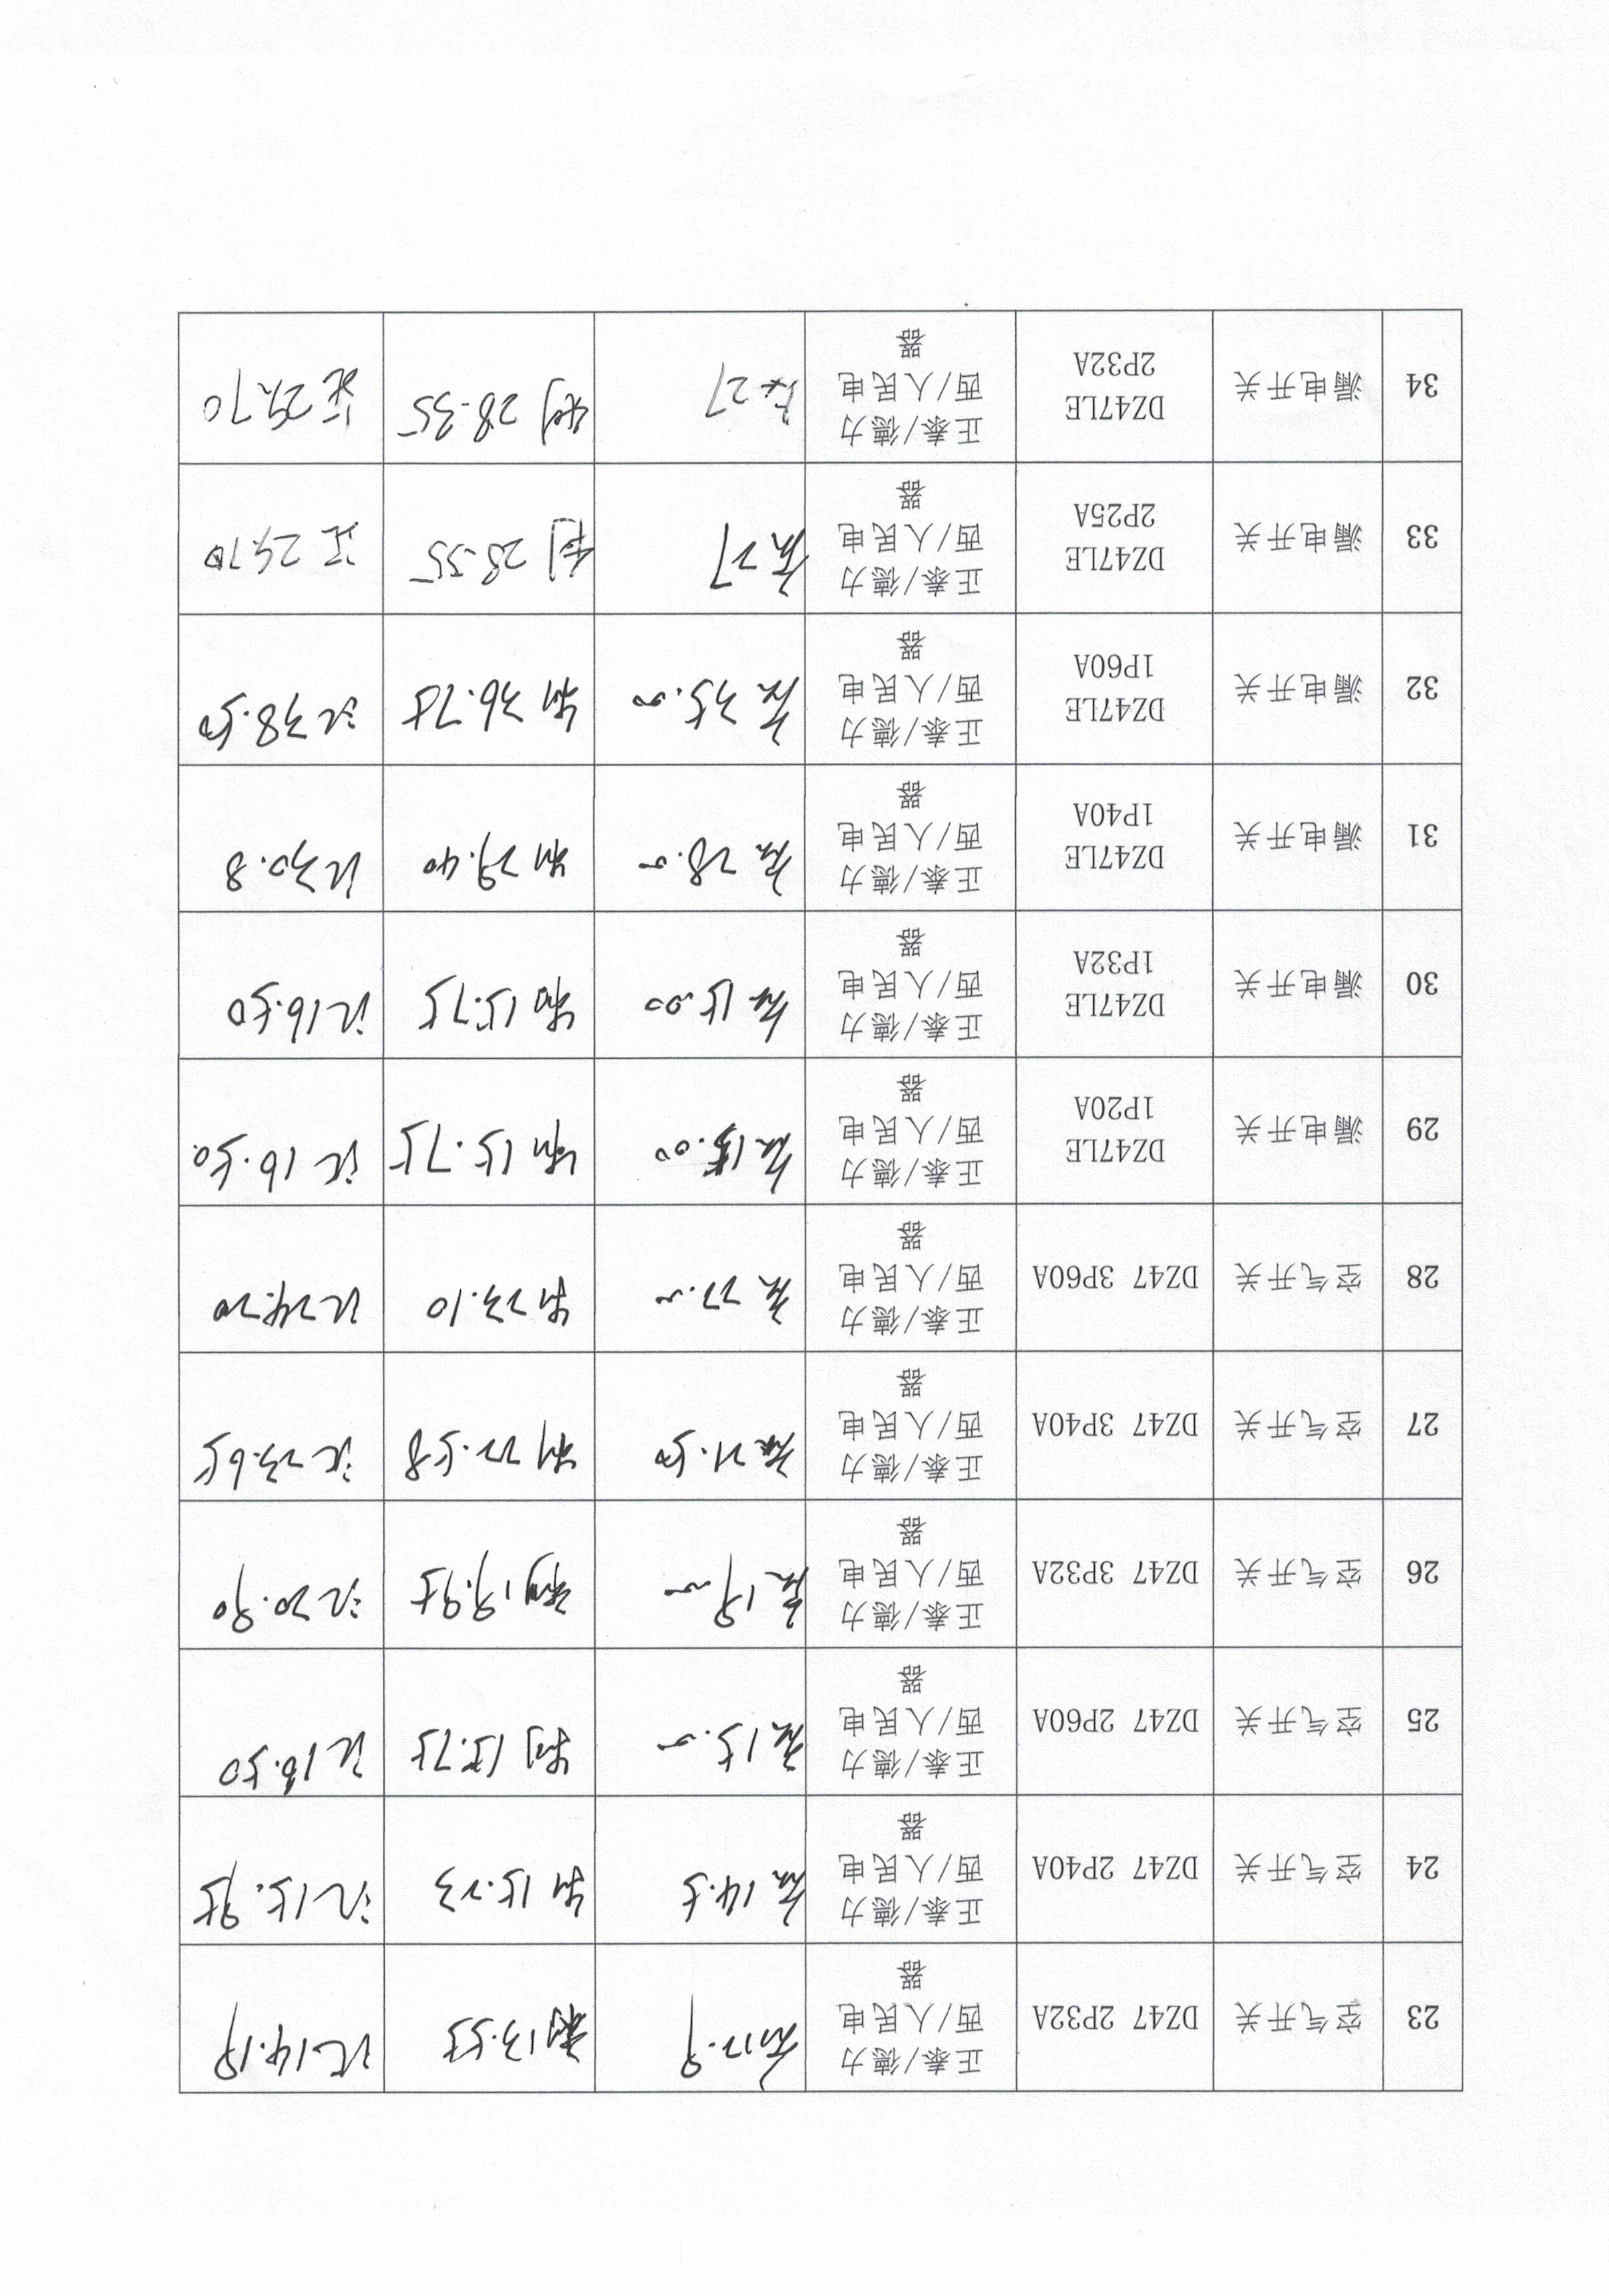 23
空气开关
DZ47 2P32A
正泰/德力
西/人民电
器
12.9
13.55
14.19
24
空气开关
DZ47 2P40A
正泰/德力
西/人民电
器
14.5
15.23
15.95
25
空气开关
DZ47 2P60A
正泰/德力
西/人民电
器
15.00
15.75
16.50
26
空气开关
DZ47 3P32A
正泰/德力
西/人民电
器
19.00
19.95
20.90
27
空气开关
DZ47 3P40A
正泰/德力
西/人民电
器
21.50
22.58
23.65
28
空气开关
DZ47 3P60A
正泰/德力
西/人民电
器
22.00
23.10
24.20
29
漏电开关
DZ47LE
1P20A
正泰/德力
西/人民电
器
15.00
15.75
16.50
30
漏电开关
DZ47LE
1P32A
正泰/德力
西/人民电
器
15.00
15.75
16.50
31
漏电开关
DZ47LE
1P40A
正泰/德力
西/人民电
器
28.00
29.40
30.8
32
漏电开关
DZ47LE
1P60A
正泰/德力
西/人民电
器
35.00
36.75
38.50
33
漏电开关
DZ47LE
2P25A
正泰/德力
西/人民电
器
27
28.35
29.70
34
漏电开关
DZ47LE
2P32A
正泰/德力
西/人民电
器
27
28.35
29.70